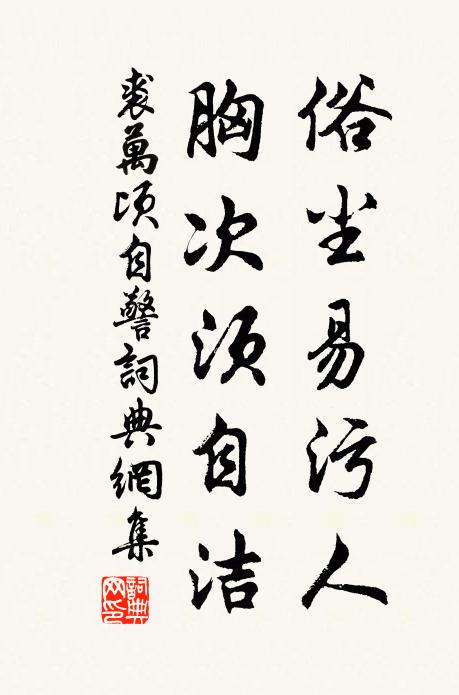 俗尘易污人
胸次须自洁
裘萬頃自警詞典網集
詞典網印